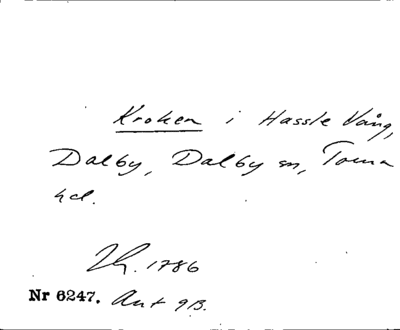 Kroken i Hassle Vång,
Dalby, Dalby sn, Torna
hd.
Lh. 1786
Nr 6247. Avt 9B.